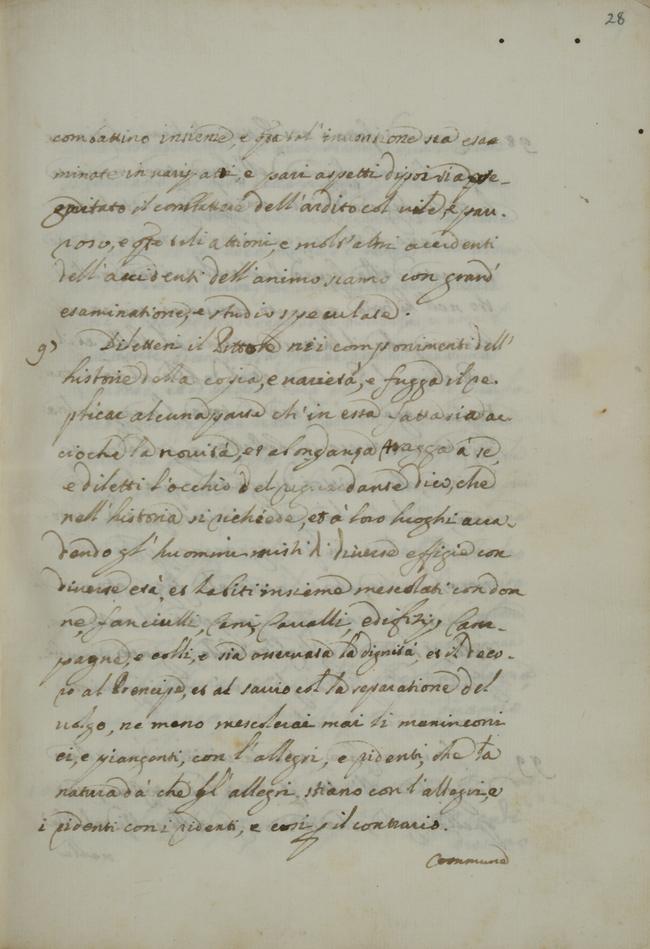 28
combattino insieme, e q.ta tal' inventione sia esa-
minata in varij atti, e varij aspetti dipoi sia
seguitato il combattere dell'ardito col vile, e pau-
roso, e q.te tali attioni, e molt'altri accidenti
dell'accidenti dell'animo siano con grand'
esaminatione, e studio speculate.
Diletteri il Pittore nei componimenti dell'
historie della copia, e varietà, e fugga il re-
plicar alcuna parte ch' in essa fatta sia ac-
cioche la novità, et abondanza tragga à sé,
e diletti l'occhio del riguardante dico, che
nell'historia si richiede, et à loro luoghi acca-
dendo gl'huomini misti di diverse effigie con
diverse età, et habiti insieme mescolati con don
ne, fanciulli, Cani, Cavalli, edifizij, Cam-
pagne, e colli, e sia osservata la dignità, et il deco-
ro al Prencipe, et al savio col la separatione del
volgo, ne meno mescolerai mai li maninconi
ci, e piangenti, con l'allegri, e ridenti, che la
natura dà che gl'allegri stiano con l'allegri, e
i ridenti con i ridenti, e così p il contrario.
Commune